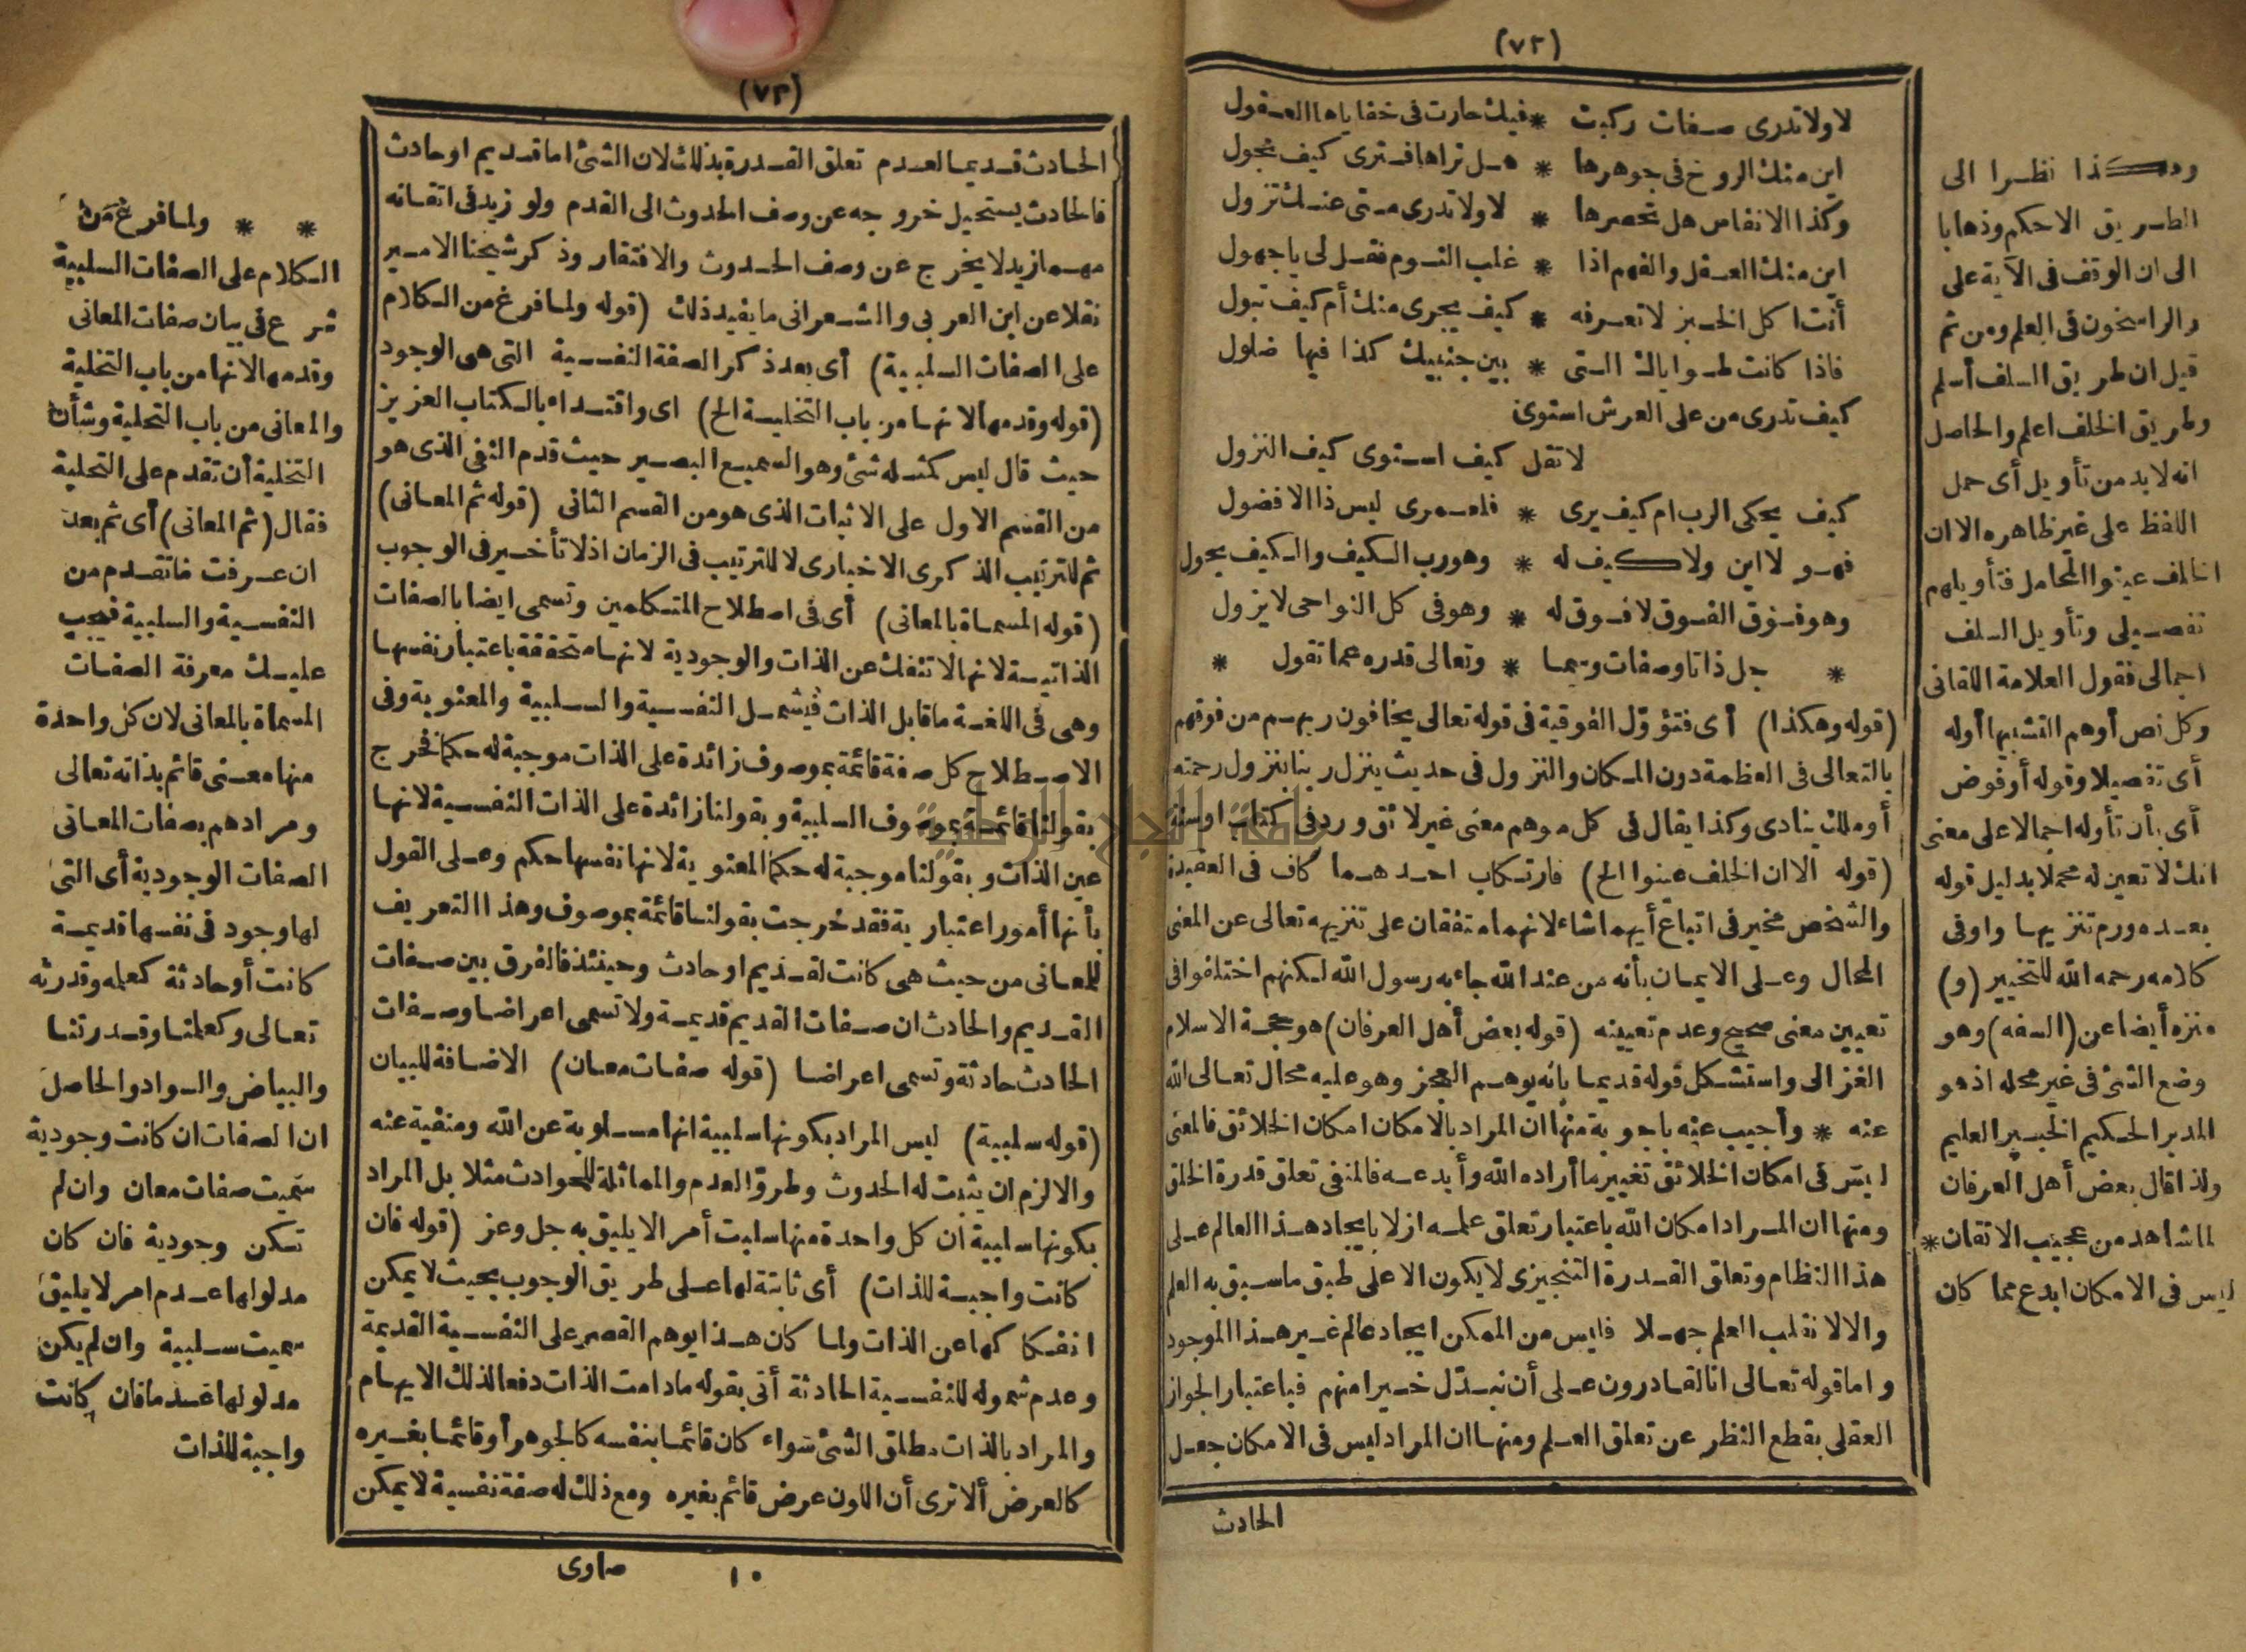 (٧٢)
لا ولا تدرى صفات ركبت * فيك حارت فى خفاياها العقول
اين منك الروح فى جوهرها * هل تراها فترى كيف تجول
وكذا الانفاس هل تحصرها * لا ولا تدرى متى عنك تزول
اين منك العقل والفهم اذا * غلب النوم فقل لى يا جهول
أنت اكل الخبز لا تعرفه * كيف يجرى منك أم كيف تبول
فاذا كانت طواياك التى * بين جنبيك كذا فيها ضلول
كيف تدرى من على العرش استوى
لا تقل كيف استوى كيف النزول
كيف يحكى الرب ام كيف يرى * فلعمرى ليس ذا الا فضول
فهو لا اين ولا كيف له * وهو رب الكيف والكيف يحول
وهو فوق الفوق لا فوق له * وهو فى كل النواحى لا يزول
* جل ذاتا وصفات وسما * وتعالى قدره عما تقول *
(قوله وهكذا) أى فتؤوّل الفوقية فى قوله تعالى يخافون ربهم من فوقهم
بالتعالى فى العظمة دون المكان والنزول فى حديث ينزل ربنا بنزول رحمته
أو ملك ينادى وكذا يقال فى كل موهم معنى غير لائق ورد فى كتاب او سنة
(قوله الا ان الخلف عينوا الخ) فارتكاب احدهما كاف فى العقيدة
والشخص مخير فى اتباع أيهما شاء لانهما متفقان على تنزيهه تعالى عن المعنى
المحال وعلى الايمان بأنه من عند الله جاء به رسول الله لكنهم اختلفوا فى
تعيين معنى صحيح وعدم تعيينه (قوله بعض أهل العرفان) هو حجة الاسلام
الغزالى واستشكل قوله قديما بانه يوهم العجز وهو عليه محال تعالى الله
عنه * وأجيب عنه باجوبة منها ان المراد بالامكان امكان الخلائق فالمعنى
ليس فى امكان الخلائق تغيير ما أراده الله وأبدعه فالمنفى تعلق قدرة الخلق
ومنها ان المراد امكان الله باعتبار تعلق علمه ازلا بايجاد هذا العالم على
هذا النظام وتعلق القدرة التنجيزى لا يكون الا على طبق ما سبق به العلم
والا لانقلب العلم جهلا فليس من الممكن ايجاد عالم غير هذا الموجود
واما قوله تعالى انا لقادرون على أن نبدّل خيرا منهم فباعتبار الجواز
العقلى بقطع النظر عن تعلق العلم ومنها ان المراد ليس فى الامكان جعل
الحادث
وهكذا نظرا الى
الطريق الاحكم وذهابا
الى ان الوقف فى الآية على
والراسخون فى العلم ومن ثم
قيل ان طريق السلف أسلم
وطريق الخلف اعلم والحاصل
انه لا بد من تأويل أى حمل
اللفظ على غير ظاهره الا ان
الخلف عينوا المحامل فتأويلهم
تفصيلى وتأويل السلف
اجمالى فقول العلامة اللقانى
وكل نص أوهم التشبيها أوله
أى تفصيلا وقوله أو فوض
أى بأن تأوله اجمالا على معنى
انك لا تعين له محملا بدليل قوله
بعده ورم تنزيها واو فى
كلامه رحمه الله للتخيير (و)
منزه أيضا عن (السفه) وهو
وضع الشئ فى غير محله اذ هو
المدبر الحكيم الخبير العليم
ولذا قال بعض أهل العرفان
المشاهد من عجيب الاتقان *
ليس فى الامكان ابدع مما كان
(٧٣)
الحادث قديما لعدم تعلق القدرة بذلك لان الشئ اما قديم او حادث
فالحادث يستحيل خروجه عن وصف الحدوث الى القدم ولو زيد فى اتقانه
مهما زيد لا يخرج عن وصف الحدوث والافتقار وذكر شيخنا الامير
نقلا عن ابن العربى والشعرانى ما يفيد ذلك (قوله ولما فرغ من الكلام
على الصفات السلبية) أى بعد ذكر الصفة النفسية التى هى الوجود
(قوله وقدمها لانها من باب التخلية الخ) اى واقتداء بالكتاب العزيز
حيث قال ليس كمثله شئ وهو السميع البصير حيث قدم النفى الذى هو
من القسم الاول على الاثبات الذى هو من القسم الثانى (قوله ثم المعانى)
ثم للترتيب الذكرى الاخبارى لا للترتيب فى الزمان اذ لا تأخير فى الوجوب
(قوله المسماة بالمعانى) أى فى اصطلاح المتكلمين وتسمى ايضا بالصفات
الذاتية لانها لا تنفك عن الذات والوجودية لانها متحققة باعتبار نفسها
وهى فى اللغة ما قابل الذات فيشمل النفسية والسلبية والمعنوية وفى
الاصطلاح كل صفة قائمة بموصوف زائدة على الذات موجبة له حكما فخرج
بقولنا قائمة بموصوف السلبية وبقولنا زائدة على الذات النفسية لانها
عين الذات وبقولنا موجبة له حكما المعنوية لانها نفسها حكم وعلى القول
بأنها أمور اعتبارية فقد خرجت بقولنا قائمة بموصوف وهذا التعريف
للمعانى من حيث هى كانت لقديم او حادث وحينئذ فالفرق بين صفات
القديم والحادث ان صفات القديم قديمة ولا تسمى اعراضا وصفات
الحادث حادثة وتسمى اعراضا (قوله صفات معان) الاضافة للبيان
(قوله سلبية) ليس المراد بكونها سلبية انها مسلوبة عن الله ومنفية عنه
والا لزم ان يثبت له الحدوث وطرو العدم والمماثلة للحوادث مثلا بل المراد
بكونها سلبية ان كل واحدة منها سلبت أمرا لا يليق به جل وعز (قوله فان
كانت واجبة للذات) أى ثابتة لها على طريق الوجوب بحيث لا يمكن
انفكاكها عن الذات ولما كان هذا يوهم القصر على النفسية القديمة
وعدم شموله للنفسية الحادثة أتى بقوله مادامت الذات دفعا لذلك الايهام
والمراد بالذات مطلق الشئ سواء كان قائما بنفسه كالجوهر أو قائما بغيره
كالعرض ألا ترى أن اللون عرض قائم بغيره ومع ذلك له صفة نفسية لا يمكن
١٠ صاوى
* * ولما فرغ من
الكلام على الصفات السلبية
شرع فى بيان صفات المعانى
وقدمها لانها من باب التخلية
والمعانى من باب التحلية وشأن
التخلية أن تقدم على التحلية
فقال (ثم المعانى) أى ثم بعد
ان عرفت ما تقدم من
النفسية والسلبية فيجب
عليك معرفة الصفات
المسماة بالمعانى لان كل واحدة
منها معنى قائم بذاته تعالى
ومرادهم بصفات المعانى
الصفات الوجودية أى التى
لها وجود فى نفسها قديمة
كانت أو حادثة كعلمه وقدرته
تعالى وكعلمنا وقدرتنا
والبياض والسواد والحاصل
ان الصفات ان كانت وجودية
سميت صفات معان وان لم
تكن وجودية فان كان
مدلولها عدم امر لا يليق
سميت سلبية وان لم يكن
مدلولها عدما فان كانت
واجبة للذات
جامعة النجاح الوطنية